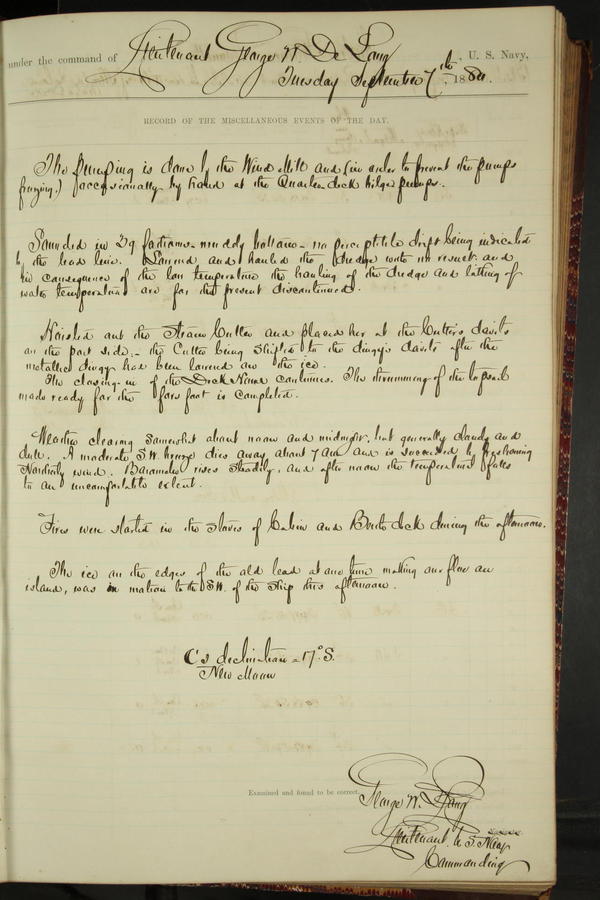 under the command of Lieutenant George W. De Long, U. S. Navy,
Tuesday September 7th, 1880.
RECORD OF THE MISCELLANEOUS EVENTS OF THE DAY.
The pumping is done by the Wind Mill and (in order to prevent the pumps
freezing) occasionally by hand at the Quarter deck bilge pumps.
Sounded in 29 fathoms - muddy bottom - no perceptible drift being indicated
by the lead line. Lowered and hauled the dredge with no result and
in consequence of the low temperature the hauling of the dredge and taking of
water temperatures are for the present discontinued.
Hoisted out the Steam Cutter and placed her at the Cutter's davits
on the port side, - the Cutter being shifted to the dingy's davits after the
metallic dingy had been lowered on the ice.
The closing-in of the Deck House continues. The trimming of the topsail
made ready for the fore foot is completed.
Weather clearing somewhat about noon and midnight, but generally cloudy and
dull. A moderate S.W. breeze dies away about 7 AM and is succeeded by freshening
Northerly wind. Barometer rises steadily, and after noon the temperature falls
to an uncomfortable extent.
Fires were started in the stoves of Cabin and Berth deck during the afternoon.
The ice on the edges of the old lead at one time making our floe an
island, was in motion to the S.W. of the Ship this afternoon.
☾'s declination = 17° S.
New Moon
Examined and found to be correct.
George W. De Long
Lieutenant U. S. Navy
Commanding